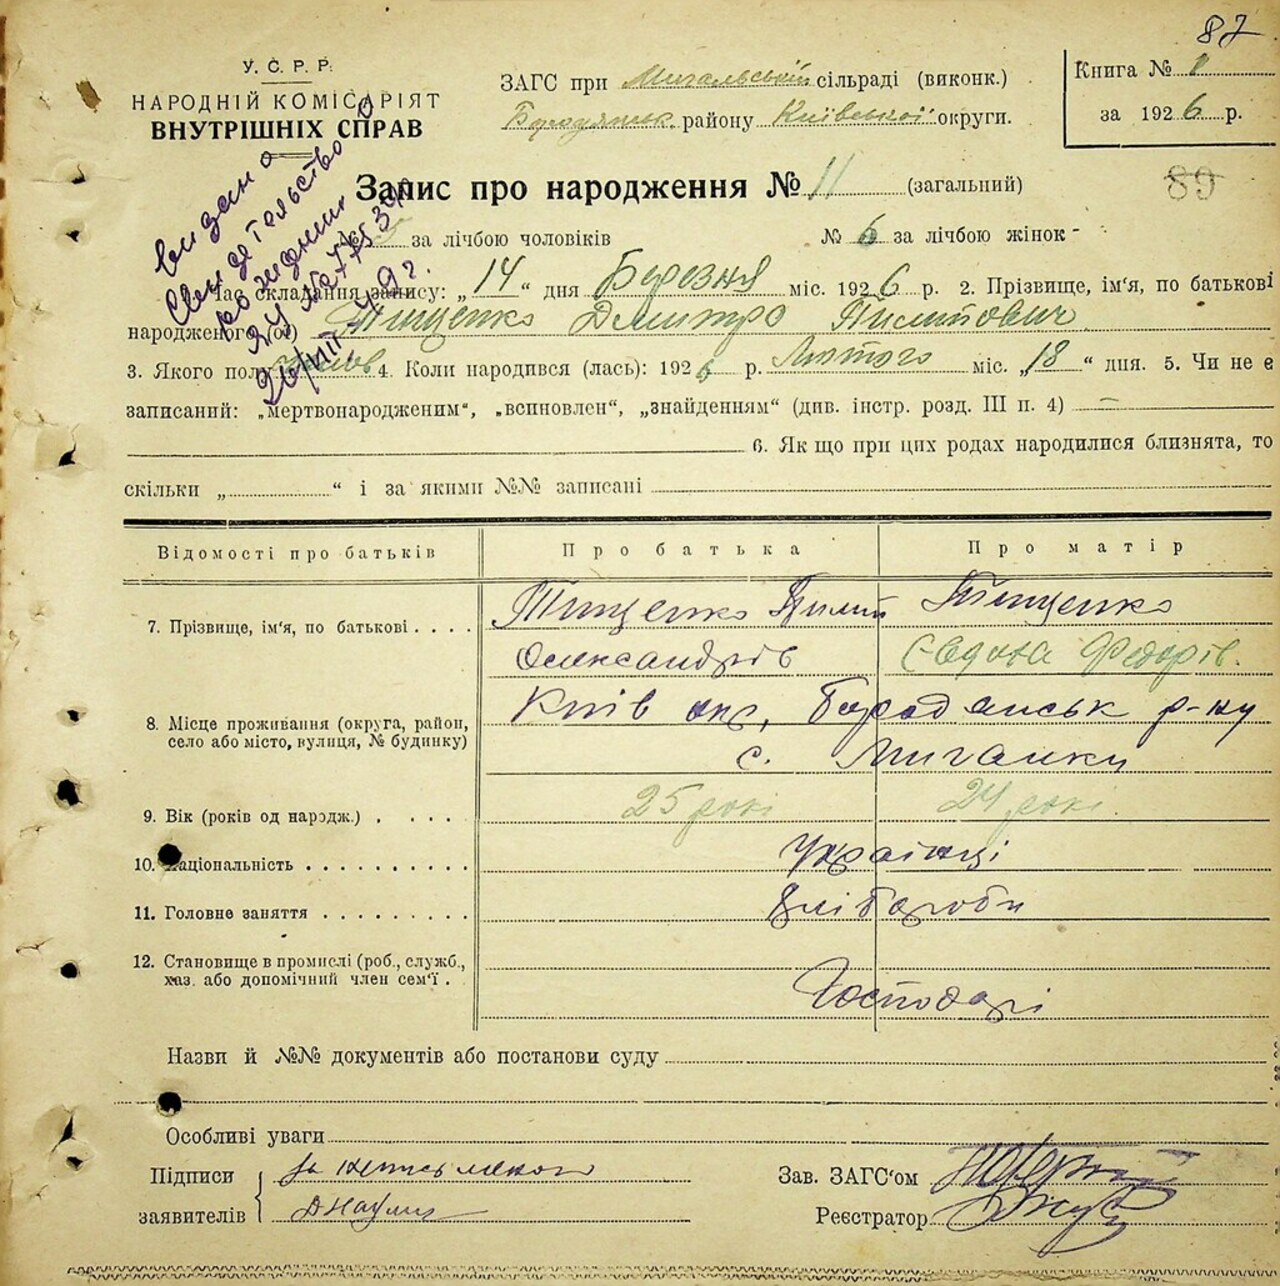 87
У. С. Р. Р.
НАРОДНІЙ КОМІСАРІЯТ
ВНУТРІШНІХ СПРАВ
ЗАГС при Мигальській сільраді (виконк.)
Бородянськ. району Київської округи.
Книга №
за 1926 р.
89
Запис про народження № 11 (загальний)
видано
свидетельство
о рождении
№ 5 за лічбою чоловіків № 6 за лічбою жінок
Час складання запису: „14“ дня Березня міс. 1926 р. 2. Прізвище, ім'я, по батькові
народженого (ої) Тищенко Дмитро Пилипович
3. Якого полу 4. Коли народився (лась): 1926 р. Лютого міс. „18“ дня. 5. Чи не є
записаний: „мертвонародженим“, „всиновлен“, „знайденням“ (див. інстр. розд. III п. 4) —
6. Як що при цих родах народилися близнята, то
скільки „ “ і за якими №№ записані
Відомості про батьків Про батька Про матір
7. Прізвище, ім'я, по батькові Тищенко Пилип Тищенко
Олександрів Євдоха Федорів.
8. Місце проживання (округа, район, село або місто, вулиця, № будинку) Київ окр, Бородянськ р-ну
с. Мигалки
9. Вік (років од народж.) 25 рокі 24 рокі.
10. Національність Українці
11. Головне заняття Хлібороби
12. Становище в промислі (роб., служб., хаз. або допомічний член сем'ї. Господарі
Назви й №№ документів або постанови суду
Особливі уваги
Підписи за неписьменого
заявителів
Зав. ЗАГС'ом
Реєстратор